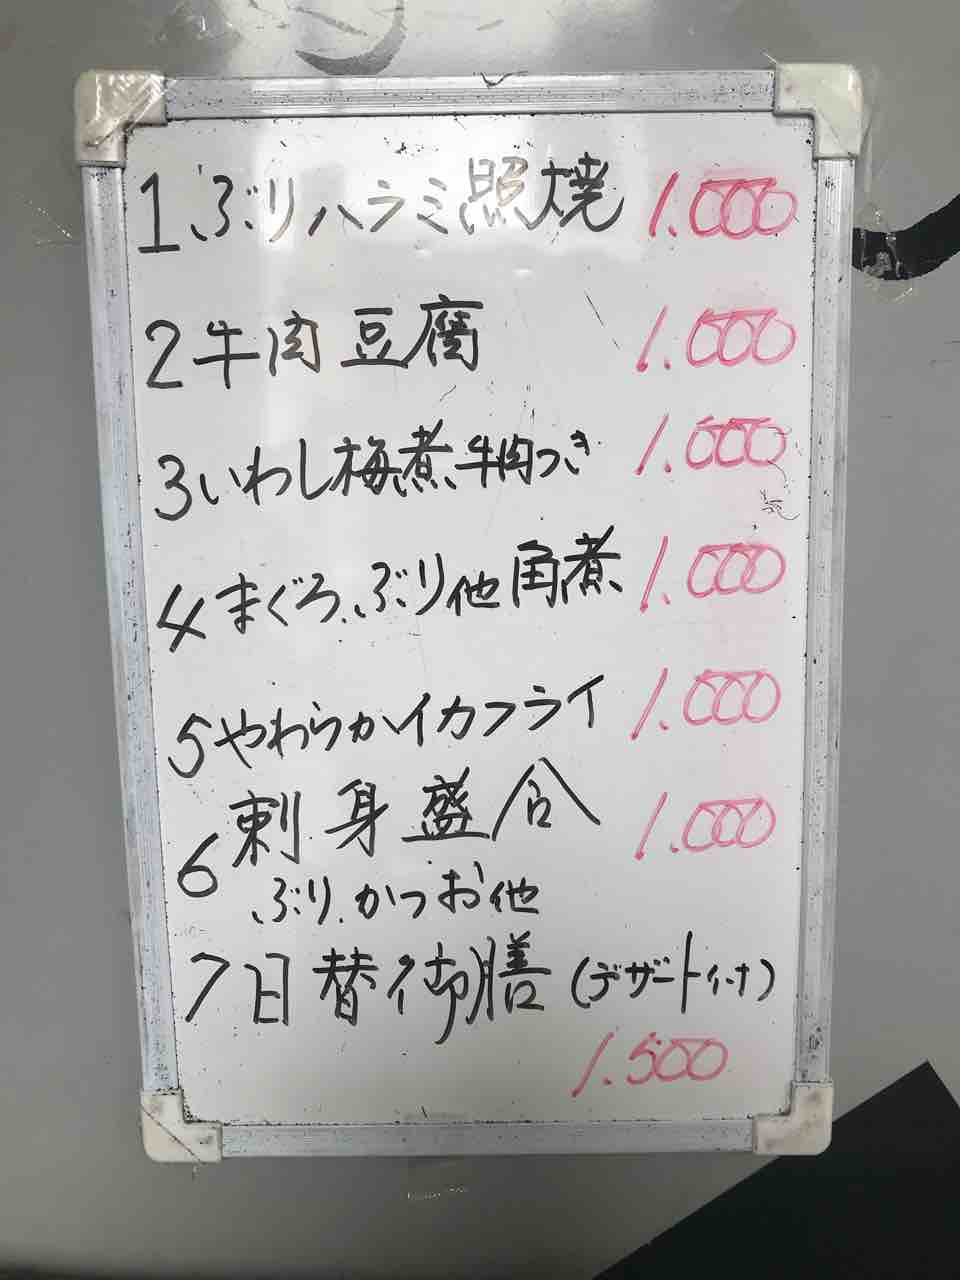 1 ぶりハラミ照焼 1.000
2 牛肉豆腐 1.000
3 いわし梅煮牛肉つき 1.000
4 まぐろ、ぶり他角煮 1.000
5 やわらかイカフライ 1.000
6 刺身盛合 1.000
ぶり、かつお他
7 日替御膳(デザート付)
1.500